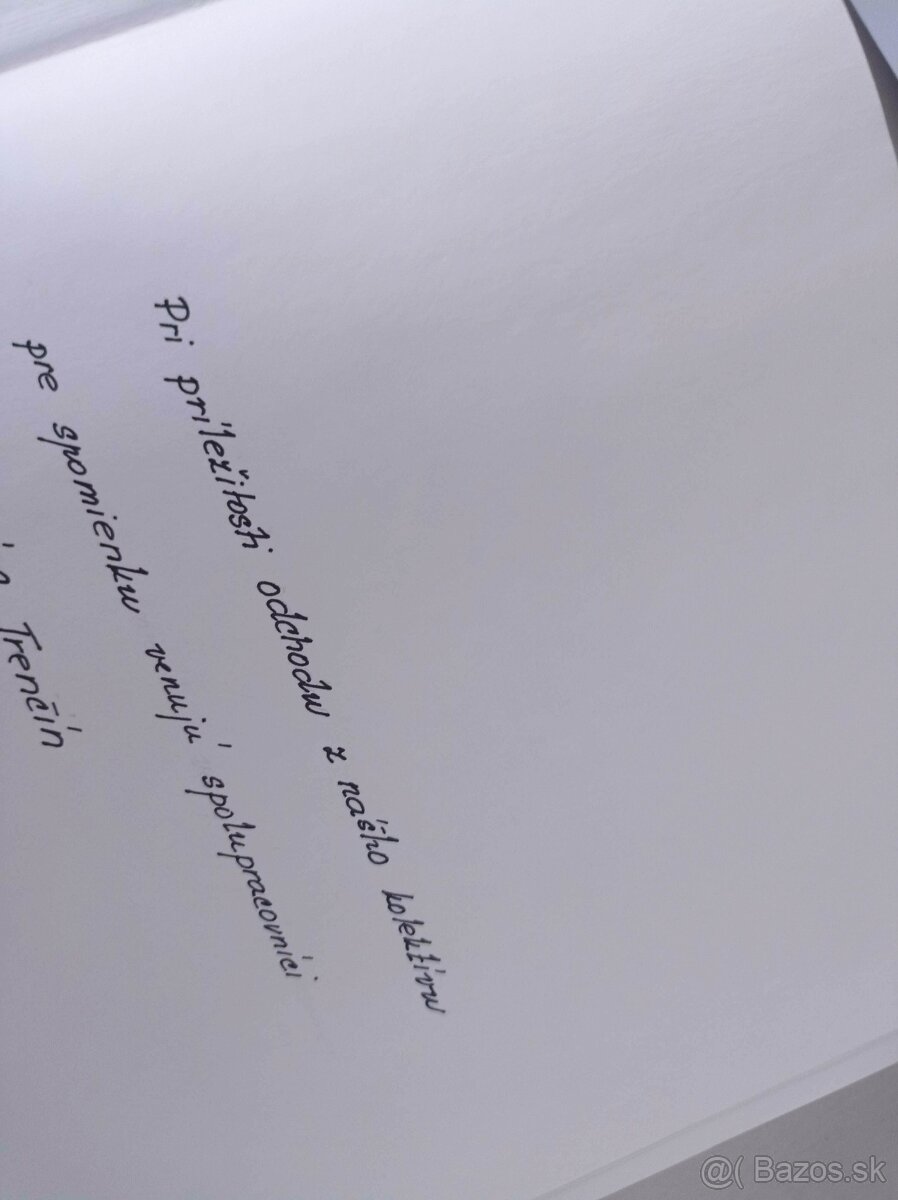 Pri príležitosti odchodu z nášho kolektívu
pre spomienku venujú spolupracovníci
Trenčín
@( Bazos.sk